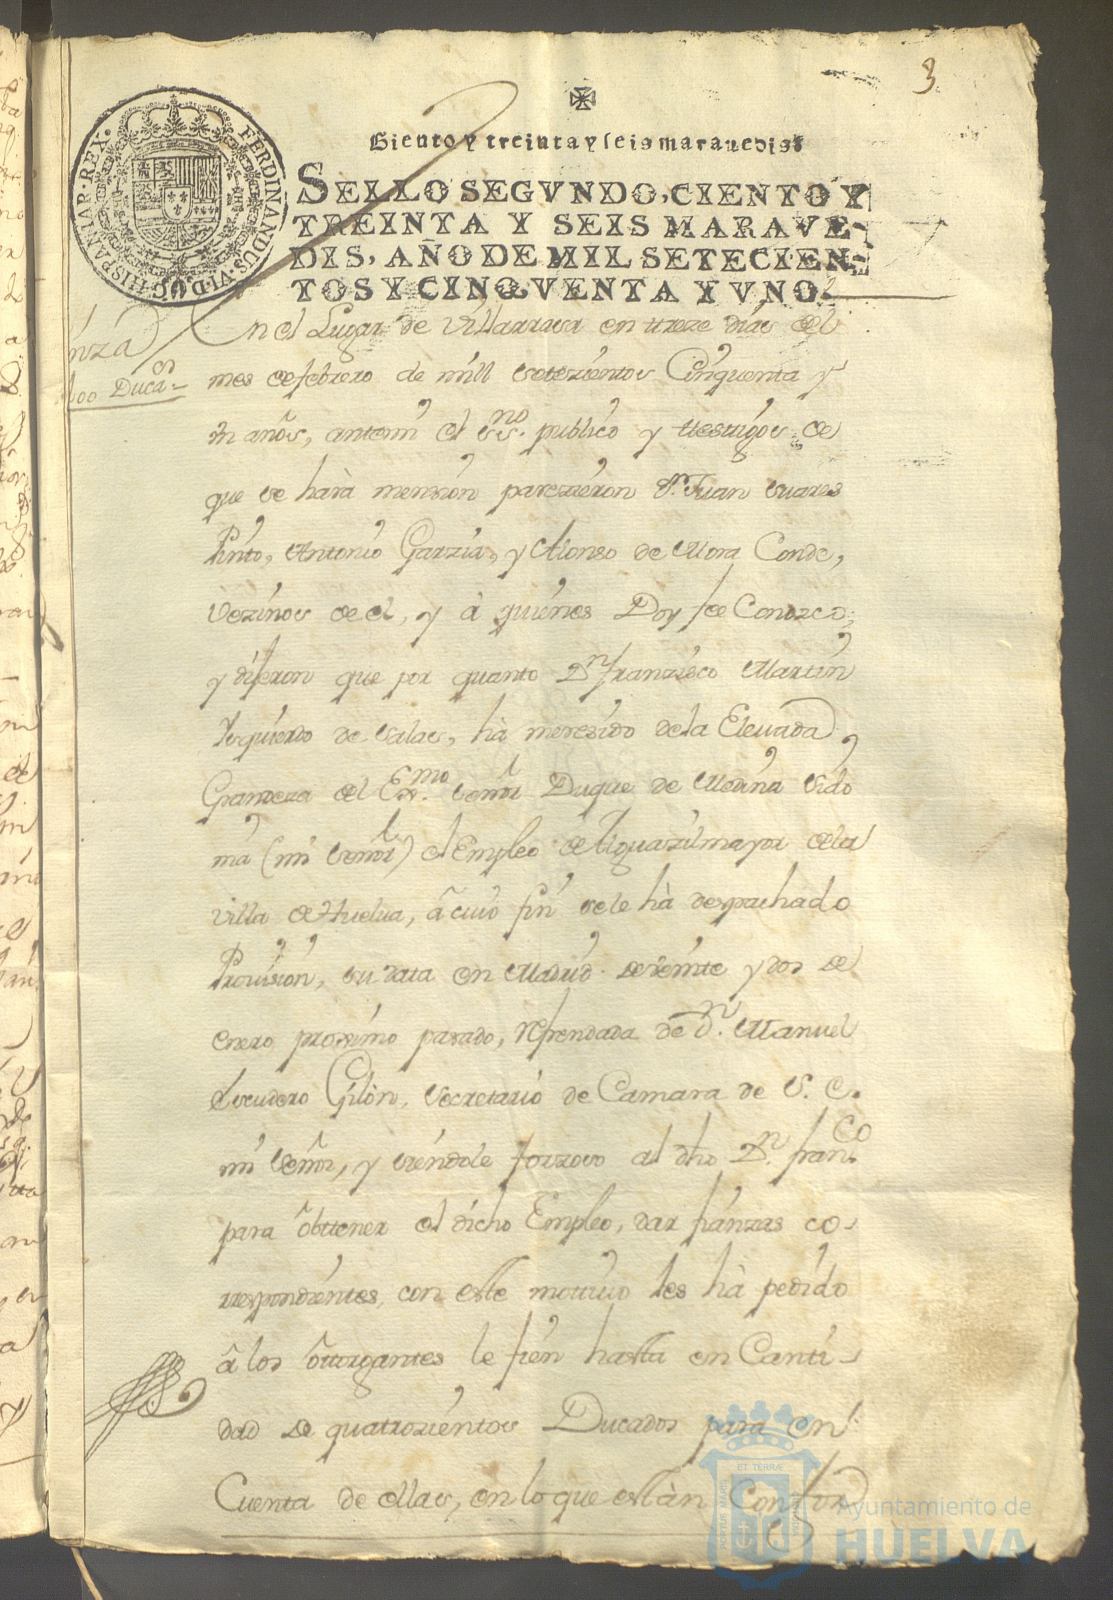 3
Ciento y treinta y seis maravedis
SELLO SEGVNDO, CIENTO Y
TREINTA Y SEIS MARAVE-
DIS, AÑO DE MIL SETECIEN-
TOS Y CINQVENTA Y VNO.
FERDINANDUS·VI·D·G·HISPANIAR·REX·
nza
400 Ducas
En el Lugar de Villarrasa en treze dias del
mes de febrero de mill setezientos Cinquenta y
un años, antemi el ssno. publico y testigos de
que se hará menzion parezieron Dn. Juan Suares
Pinto, Antonio Garzia, y Alonso de Mora Conde,
vezinos de el, y à quienes Doy fe Conozco,
y dijeron que por quanto Dn. franzisco Martin
Ysquierdo de Salas, hà meresido de la Elevada
Grandeza del Exmo. Señor Duque de Medina Sido
nia (mi Señor) el Empleo de Alguazil mayor de la
villa de Huelva, à cuio fin se le hà despachado
Provision, su data en Madrid de veinte y dos de
enero proximo pasado, Refrendada de Dn. Manuel
Escudero Gilòn, secretario de Camara de S. E.
mi Señor, y siendole forzoso al dho Dn. franco
para obttener el dicho Empleo, dar fianzas co-
rrespondientes, con este mottivo les hà pedido
à los otorgantes le fien hasta en Canti-
dad de quatrozientos Ducados para en
Cuenta de ellas, en lo que estàn Confor
ET TERRÆ
Ayuntamiento de
HUELVA